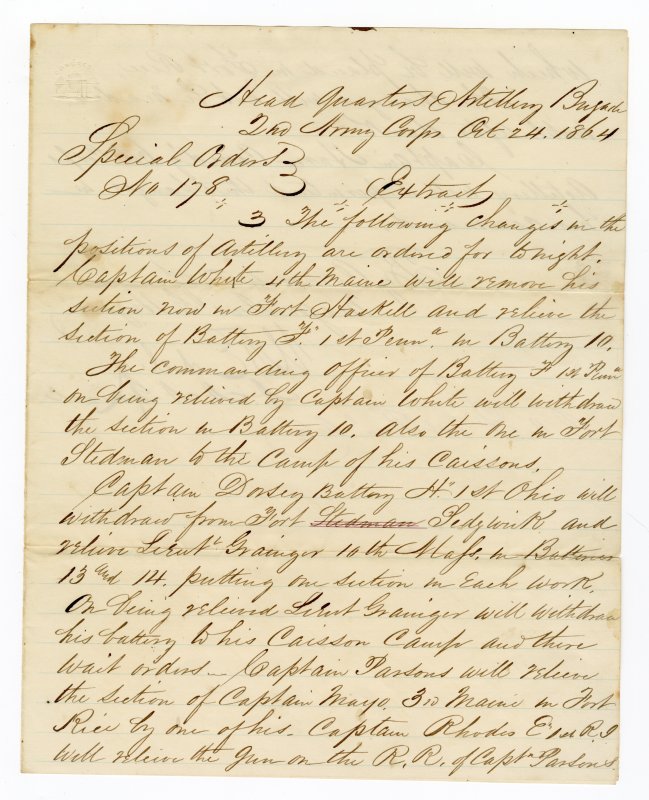 Head Quarters Artillery Brigade
2nd Army Corps Oct 24. 1864
Special Orders }
No 178 Extract
3 The following changes in the
positions of Artillery are ordered for tonight.
Captain White 4th Maine will remove his
section now in Fort Haskell and relieve the
section of Battery "F" 1st Penna. in Battery 10.
The commanding officer of Battery F 1st Penna
on being relieved by Captain White will withdraw
the section in Battery 10. also the one in Fort
Stedman to the Camp of his Caissons.
Captain Dorsey Battery "H" 1st Ohio will
withdraw from Fort Stedman Sedgwick and
relieve Lieut. Grainger 10th Mass. in Batteries
13 and 14. putting one section in each work.
On being relieved Lieut Grainger will withdraw
his battery to his Caisson Camp and there
wait orders — Captain Parsons will relieve
the section of Captain Mayo. 3rd Maine in Fort
Rice by one of his. Captain Rhodes E. 1st R.I
will releive the gun on the R.R. of Captn Parsons